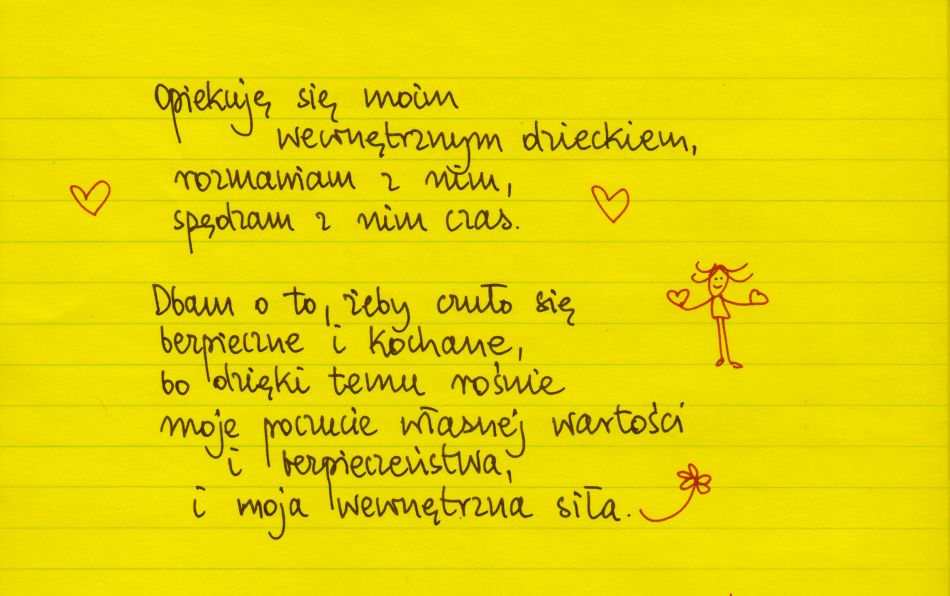 Opiekuję się moim
wewnętrznym dzieckiem,
rozmawiam z nim,
spędzam z nim czas.
Dbam o to, żeby czuło się
bezpieczne i kochane,
bo dzięki temu rośnie
moje poczucie własnej wartości
i bezpieczeństwa,
i moja wewnętrzna siła.